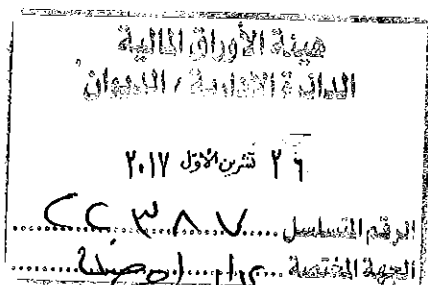 هيئة الأوراق المالية
الدائرة الإدارية / الديوان
٢٦ تشرين الأول ٢٠١٧
الرقم المتسلسل ٢٢٣٨٧
الجهة المختصة